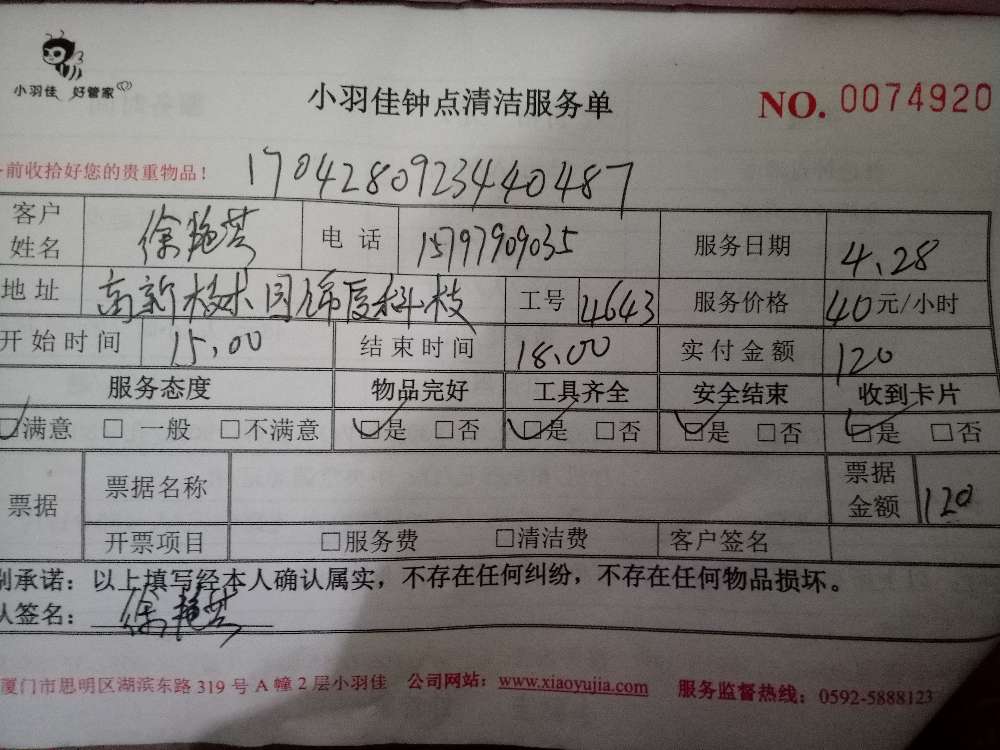 小羽佳 好管家
小羽佳钟点清洁服务单
NO. 0074920
前收拾好您的贵重物品！
170428092344040487
客户姓名 徐艳芸 电话 15797909035 服务日期 4.28
地址 高新技术园 工号 4643 服务价格 40元/小时
开始时间 15.00 结束时间 18.00 实付金额 120
服务态度 物品完好 工具齐全 安全结束 收到卡片
☑满意 □一般 □不满意 ☑是 □否 ☑是 □否 ☑是 □否 ☑是 □否
票据 票据名称 票据金额 120
开票项目 □服务费 □清洁费 客户签名
别承诺：以上填写经本人确认属实，不存在任何纠纷，不存在任何物品损坏。
人签名：徐艳芸
厦门市思明区湖滨东路 319 号 A 幢 2 层小羽佳 公司网站：www.xiaoyujia.com 服务监督热线：0592-5888123